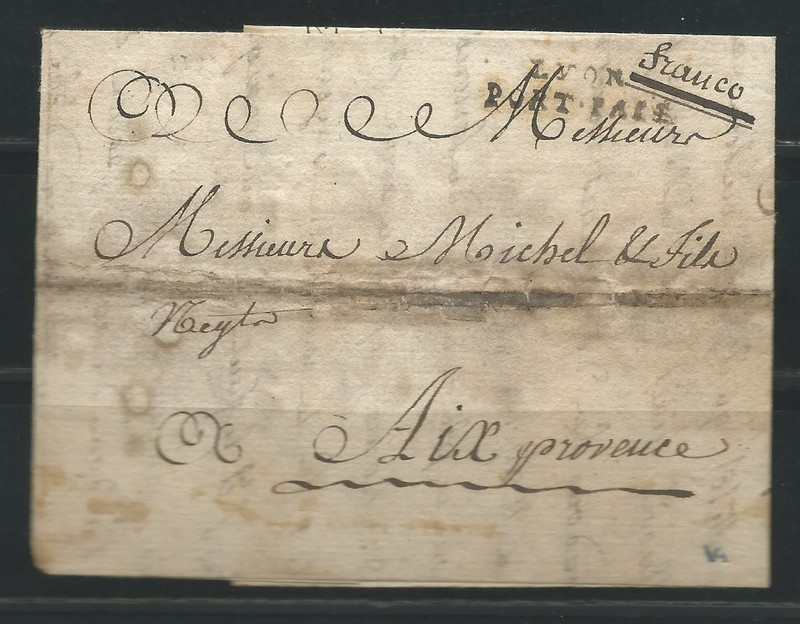 LYON
PORT·PAYÉ
franco
Messieurs
Messieurs Michel & Fils
Negts
A Aix provence